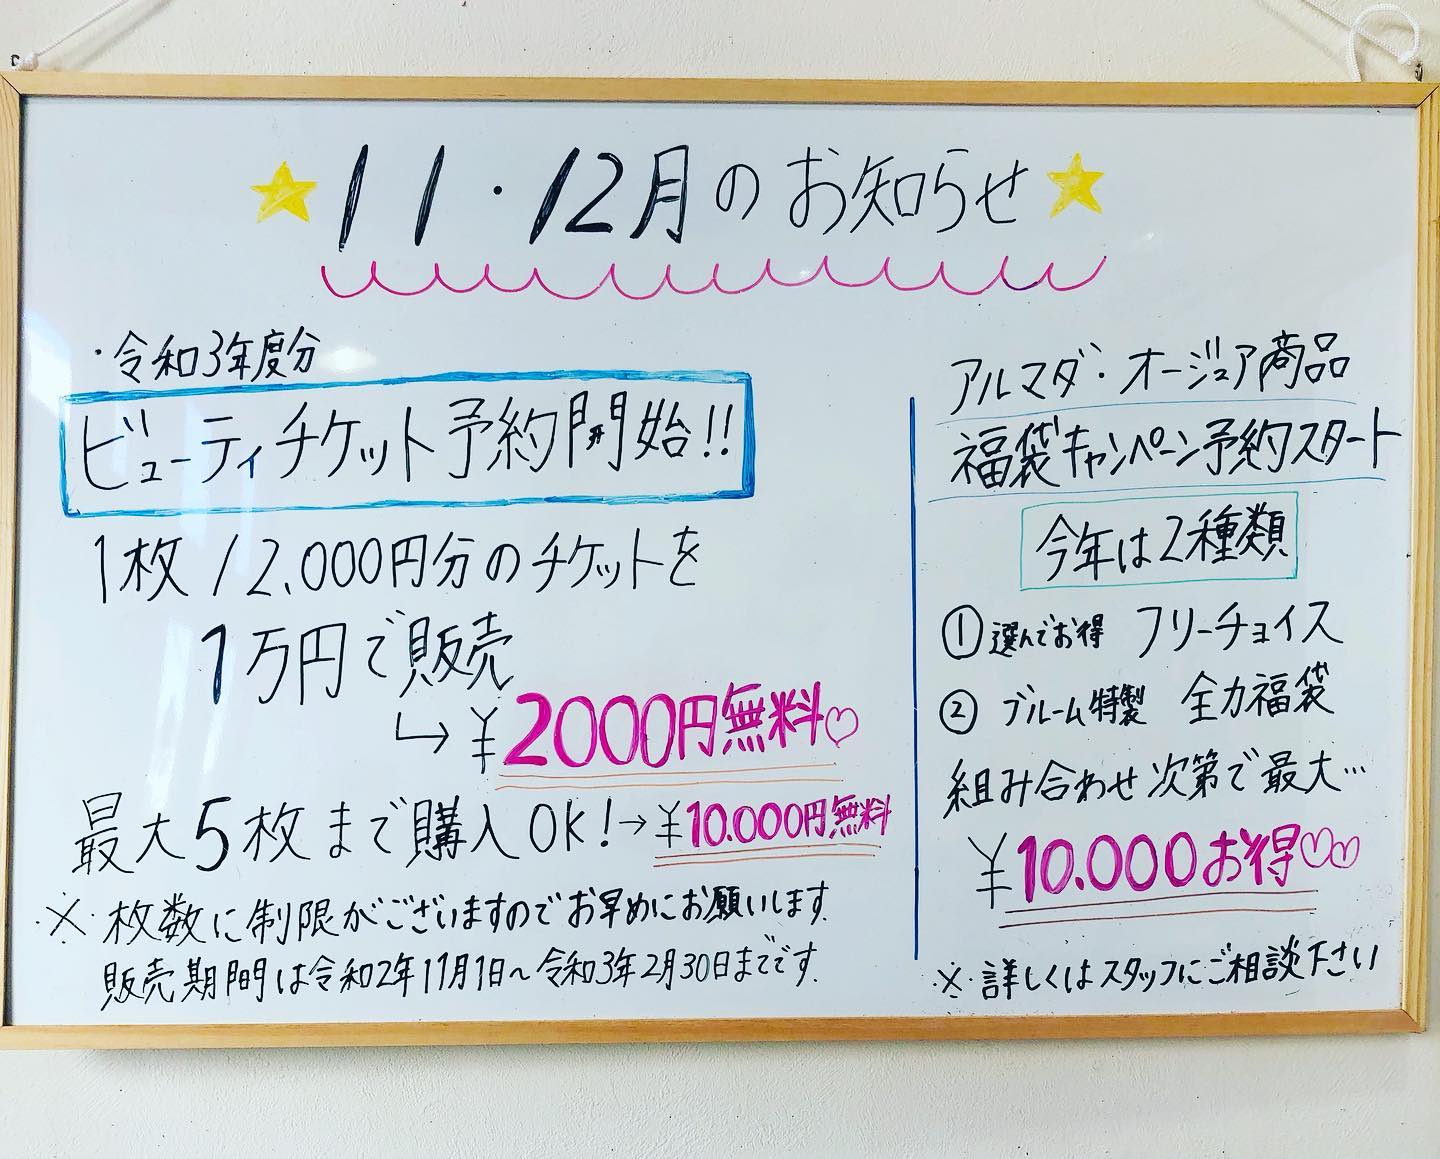 11・12月のお知らせ
・令和3年度分
ビューティチケット予約開始!!
1枚12.000円分のチケットを
1万円で販売
↳¥2000円無料♡
最大5枚まで購入OK!→¥10.000円無料
※枚数に制限がございますのでお早めにお願いします.
販売期間は令和2年11月1日〜令和3年2月30日までです.
アルマダ・オージュア商品
福袋キャンペーン予約スタート
今年は2種類
①選んでお得 フリーチョイス
②ブルーム特製 全力福袋
組み合わせ次第で最大…
¥10.000お得♡♡
※詳しくはスタッフにご相談下さい